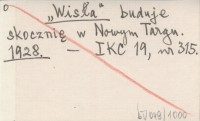 „Wisła” buduje
skocznię w Nowym Targu.
1928. — IKC 19, nr 315.